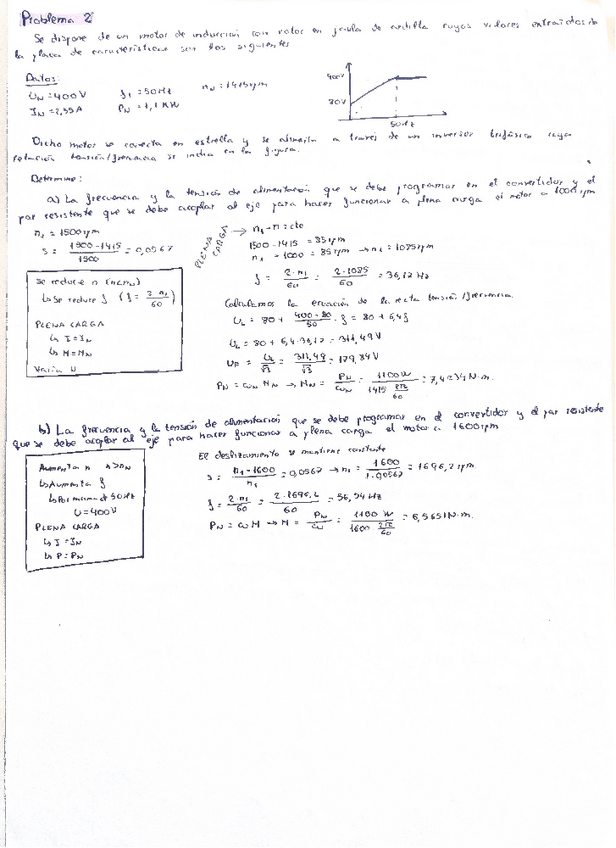 Problema 2
Se dispone de un motor de inducción con rotor en jaula de ardilla cuyos valores extraídos de
la placa de características son los siguientes
Datos:
U_N = 400V f_1 = 50Hz n_N = 1415rpm
I_N = 2,55A P_N = 1,1 KW
400V
80V
50Hz
Dicho motor se conecta en estrella y se alimenta a través de un inversor trifásico cuya
relación tensión/frecuencia se indica en la figura.
Determine:
a) La frecuencia y la tensión de alimentación que se debe programar en el convertidor y el
par resistente que se debe acoplar al eje para hacer funcionar a plena carga el motor a 1000 rpm
n_1 = 1500 rpm
S = (1500-1415)/1500 = 0,0567
Se reduce n (n<n_N)
↳ Se reduce f (f = 2·n_1/60)
PLENA CARGA
↳ I = I_N
↳ M = M_N
Varía U
PLENA CARGA → n_1 - n = cte
1500 - 1415 = 85rpm
n_1 - 1000 = 85 rpm → n_1 = 1085rpm
f = 2·n_1/60 = 2·1085/60 = 36,17 Hz
Calculamos la ecuación de la recta tensión/frecuencia.
U_L = 80 + (400-80)/50 · f = 80 + 6,4f
U_L = 80 + 6,4·36,17 = 311,49V
U_F = U_L/√3 = 311,49/√3 = 179,84V
P_N = ω_N M_N → M_N = P_N/ω_N = 1100W/(1415 2π/60) = 7,4234 N·m.
b) La frecuencia y la tensión de alimentación que se debe programar en el convertidor y el par resistente
que se debe acoplar al eje para hacer funcionar a plena carga el motor a 1600rpm
Aumenta n n>n_N
↳ Aumenta f
↳ Por encima de 50Hz
U = 400V
PLENA CARGA
↳ I = I_N
↳ P = P_N
El deslizamiento se mantiene constante
S = (n_1 - 1600)/n_1 = 0,0567 → n_1 = 1600/(1-0,0567) = 1696,2 rpm
f = 2·n_1/60 = 2·1696,2/60 = 56,54 Hz
P_N = ω M → M = P_N/ω = 1100 W/(1600 2π/60) = 6,5651 N·m.